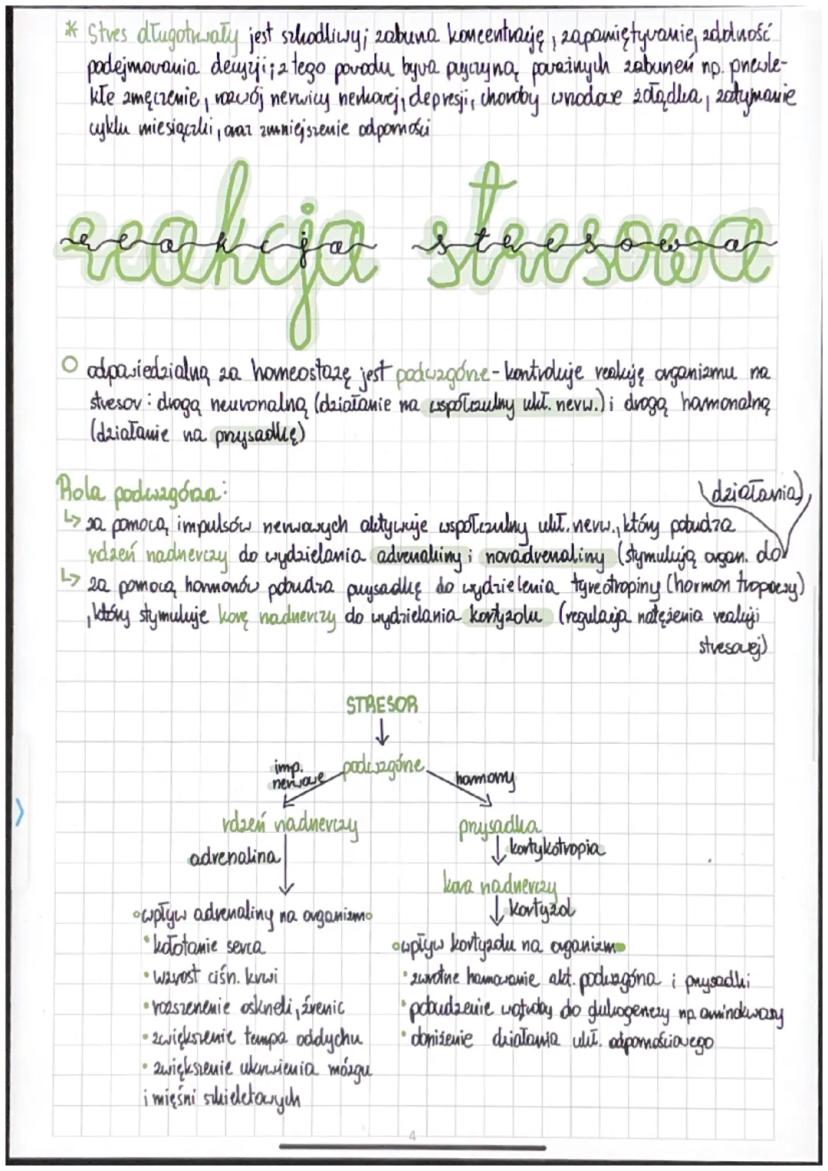 * Stres długotrwały jest szkodliwy; zaburza koncentrację, zapamiętywanie, zdolność
podejmowania decyzji; z tego powodu bywa przyczyną poważnych zaburzeń np. przewle-
kłe zmęczenie, rozwój nerwicy nerkowej, depresji, choroby wrzodowe żołądka, zatrzymanie
cyklu miesiączki, oraz zmniejszenie odporności
reakcja stresowa
odpowiedzialną za homeostazę jest podwzgórze - kontroluje reakcję organizmu na
stresor: drogą neuronalną (działanie na współczulny ukł. nerw.) i drogą hormonalną
(działanie na przysadkę)
Rola podwzgórza:
(działania)
↳ za pomocą impulsów nerwowych aktywuje współczulny ukł. nerw., który pobudza
rdzeń nadnerczy do wydzielania adrenaliny i noradrenaliny (stymulują organ. do
↳ za pomocą hormonów pobudza przysadkę do wydzielenia tyreotropiny (hormon tropowy)
, który stymuluje korę nadnerczy do wydzielania kortyzolu (regulacja natężenia reakcji
stresowej)
STRESOR
↓
podwzgórze
imp.
nerwowe
hormony
rdzeń nadnerczy
przysadka
adrenalina
↓ kortykotropia
kora nadnerczy
↓ kortyzol
wpływ adrenaliny na organizm
• kołotanie serca
• wzrost ciśn. krwi
• rozszerzenie oskrzeli, źrenic
• zwiększenie tempa oddychu
• zwiększenie ukrwienia mózgu
i mięśni szkieletowych
wpływ kortyzolu na organizm
• zwrotne hamowanie akt. podwzgórza i przysadki
• pobudzenie wątroby do glukogenezy np. aminokwasy
• obniżenie działania ukł. odpornościowego
4